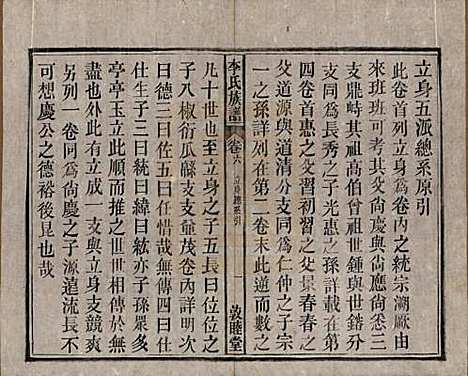 立身五派總系原引
此卷首列立身爲卷內之統宗溯厥由
來班班可考其父尙慶與尙悉三
支鼎峙其祖高伯曾祖世鍾與世鐥
支同爲長秀之子光惠之孫詳在第
四卷首惠之父初習之父景春春之
父道源與道清分支同爲仁仲之子宗
一之之孫詳列在第二卷末此道而數之
李氏族譜
卷六
立身總系引
一
敦睦堂
凡十世也至立身之子五長曰位位之
子八椒衍瓜緜支甚茂卷內詳明其
曰德三曰佐五曰任惜哉無傳四曰仕
仕生子三曰統曰緯曰紘亦子孫眾多
亭亭玉立此順而推之世世相傳於無
盡也外有立成一支與立身支競爽
另列一卷同爲尙慶之子源遠流長不
可想慶公之德裕後昆也哉